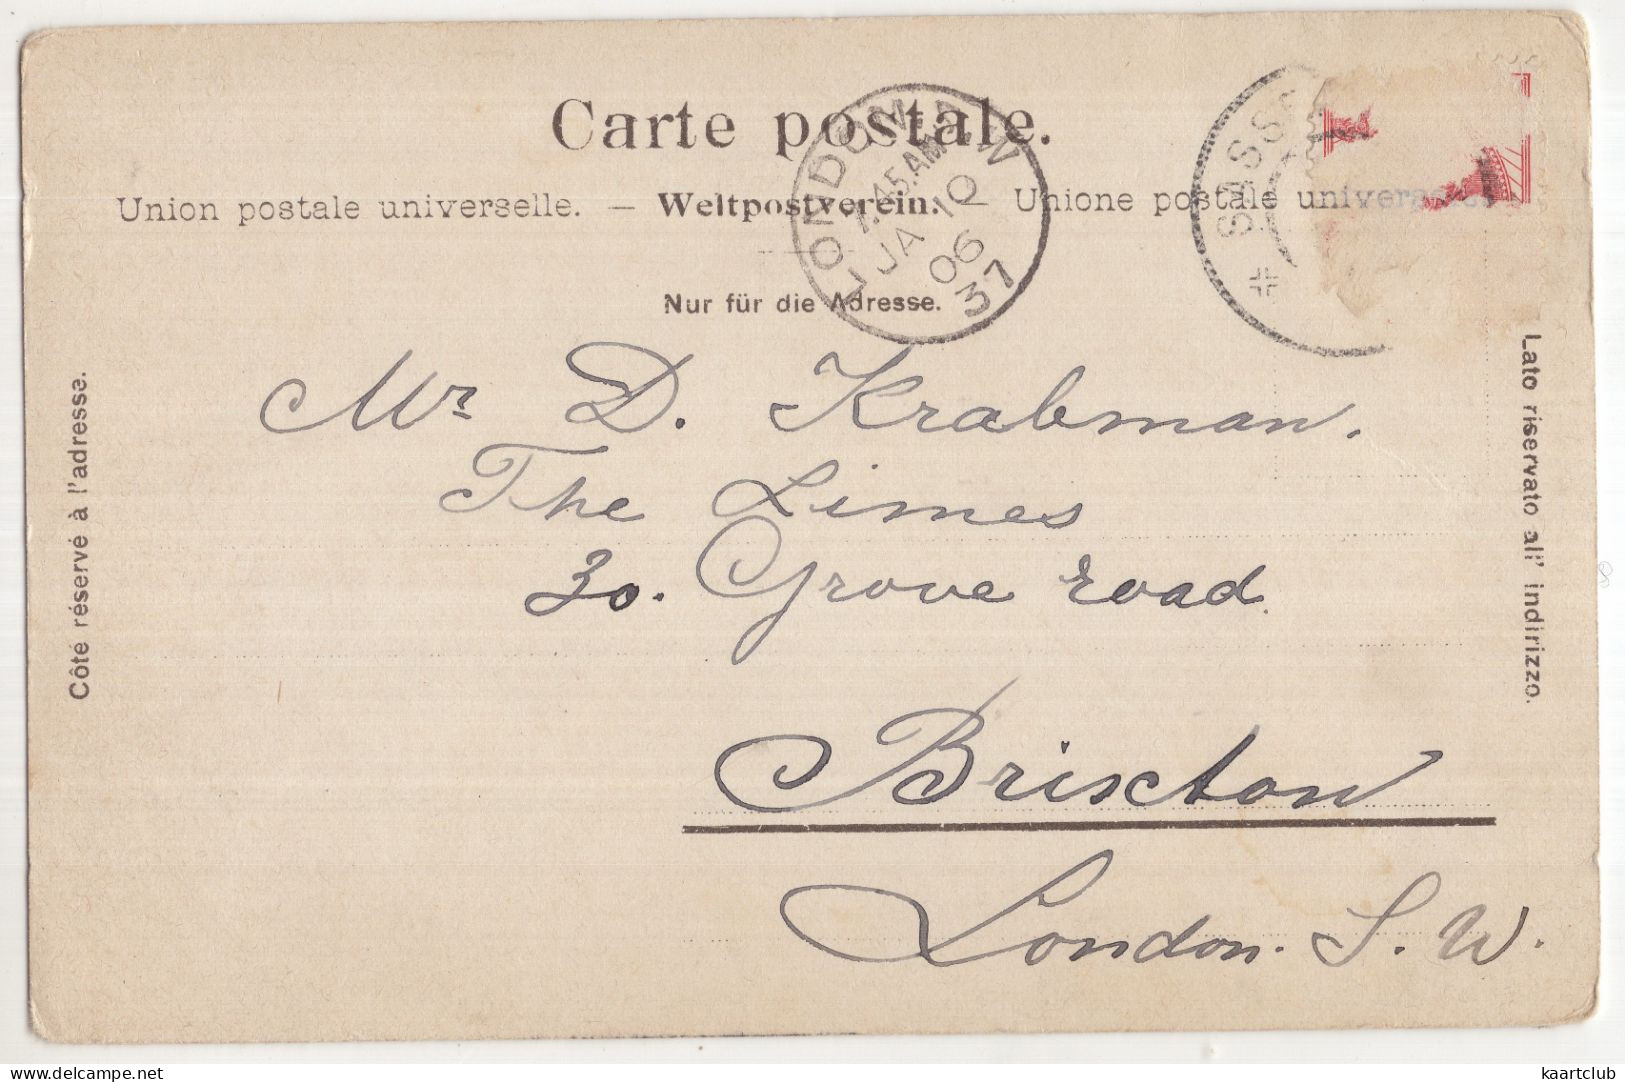 Carte postale.
Union postale universelle. — Weltpostverein. — Unione postale universale
Nur für die Adresse.
Côté réservé à l'adresse.
Lato riservato all' indirizzo.
LONDON N.W
7.45AM
JA 10
06
37
SASS
Mr D. Krabman.
The Limes
30. Grove road
Brixton
London. S. W.
delcampe.net
kaartclub